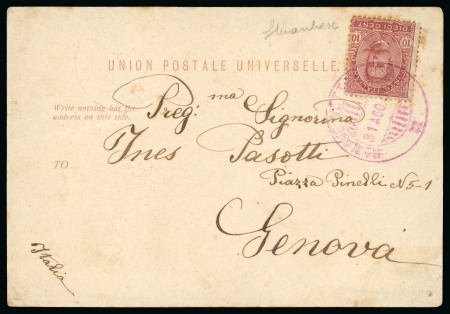 UNION POSTALE UNIVERSELLE.
Write nothing but the
address on this side.
TO
Preg.ma Signorina
Ines Pasotti
Piazza Pinelli N 5-1
Genova
Italia
10 DIECI CENT. 10